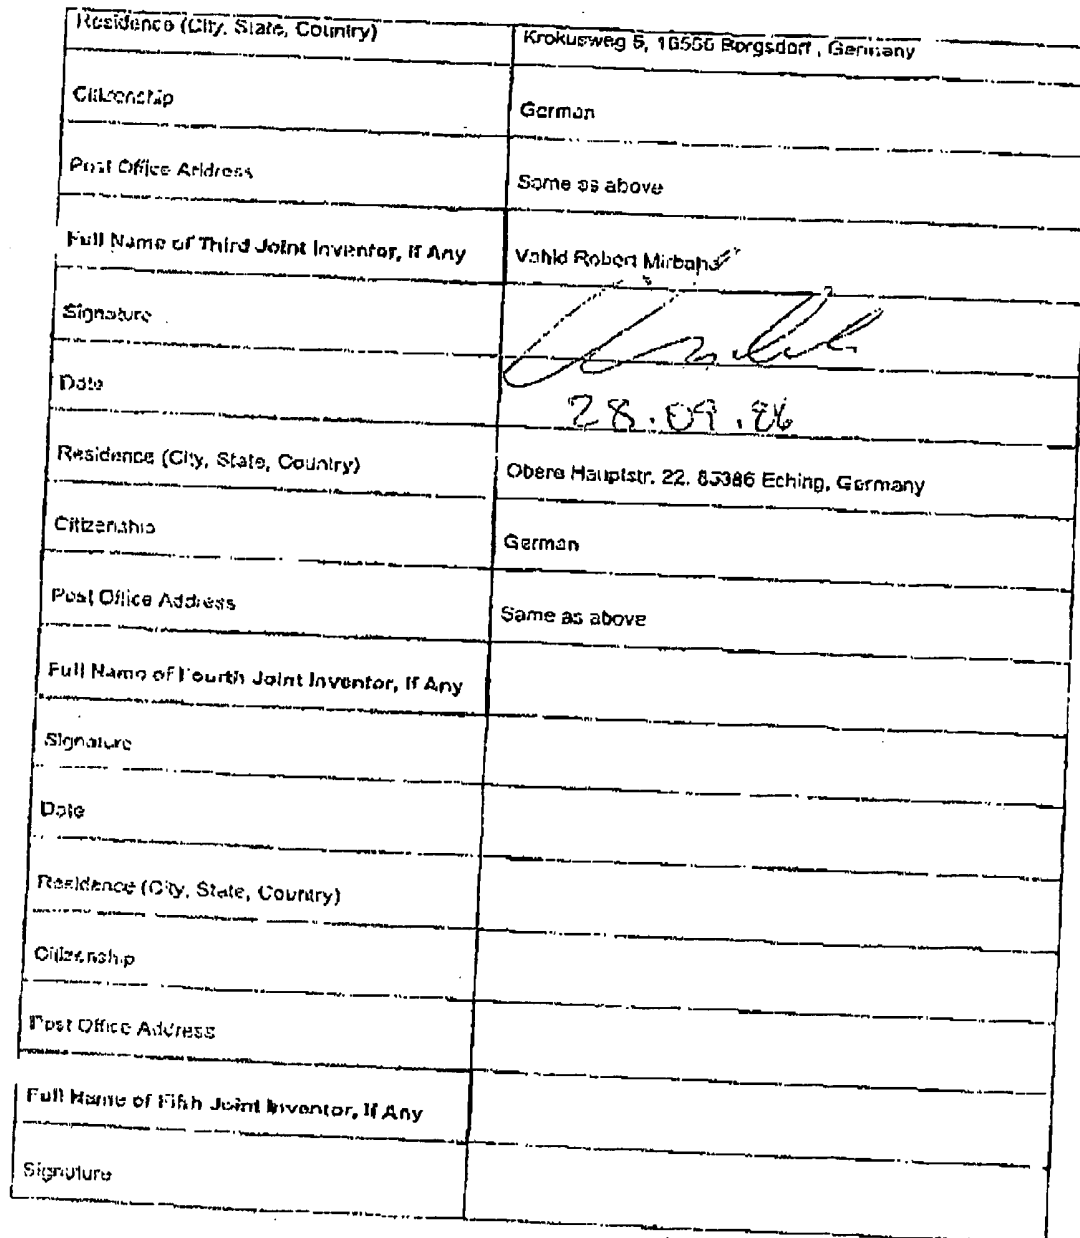 Residence (City, State, Country) Krokusweg 6, 16556 Borgsdorf , Germany
Citizenship German
Post Office Address Same as above
Full Name of Third Joint Inventor, If Any Vahid Robert
Signature
Date 28.09.
Residence (City, State, Country) Obere Hauptstr. 22, 85386 Eching, Germany
Citizenship German
Post Office Address Same as above
Full Name of Fourth Joint Inventor, If Any
Signature
Date
Residence (City, State, Country)
Citizenship
Post Office Address
Full Name of Fifth Joint Inventor, If Any
Signature